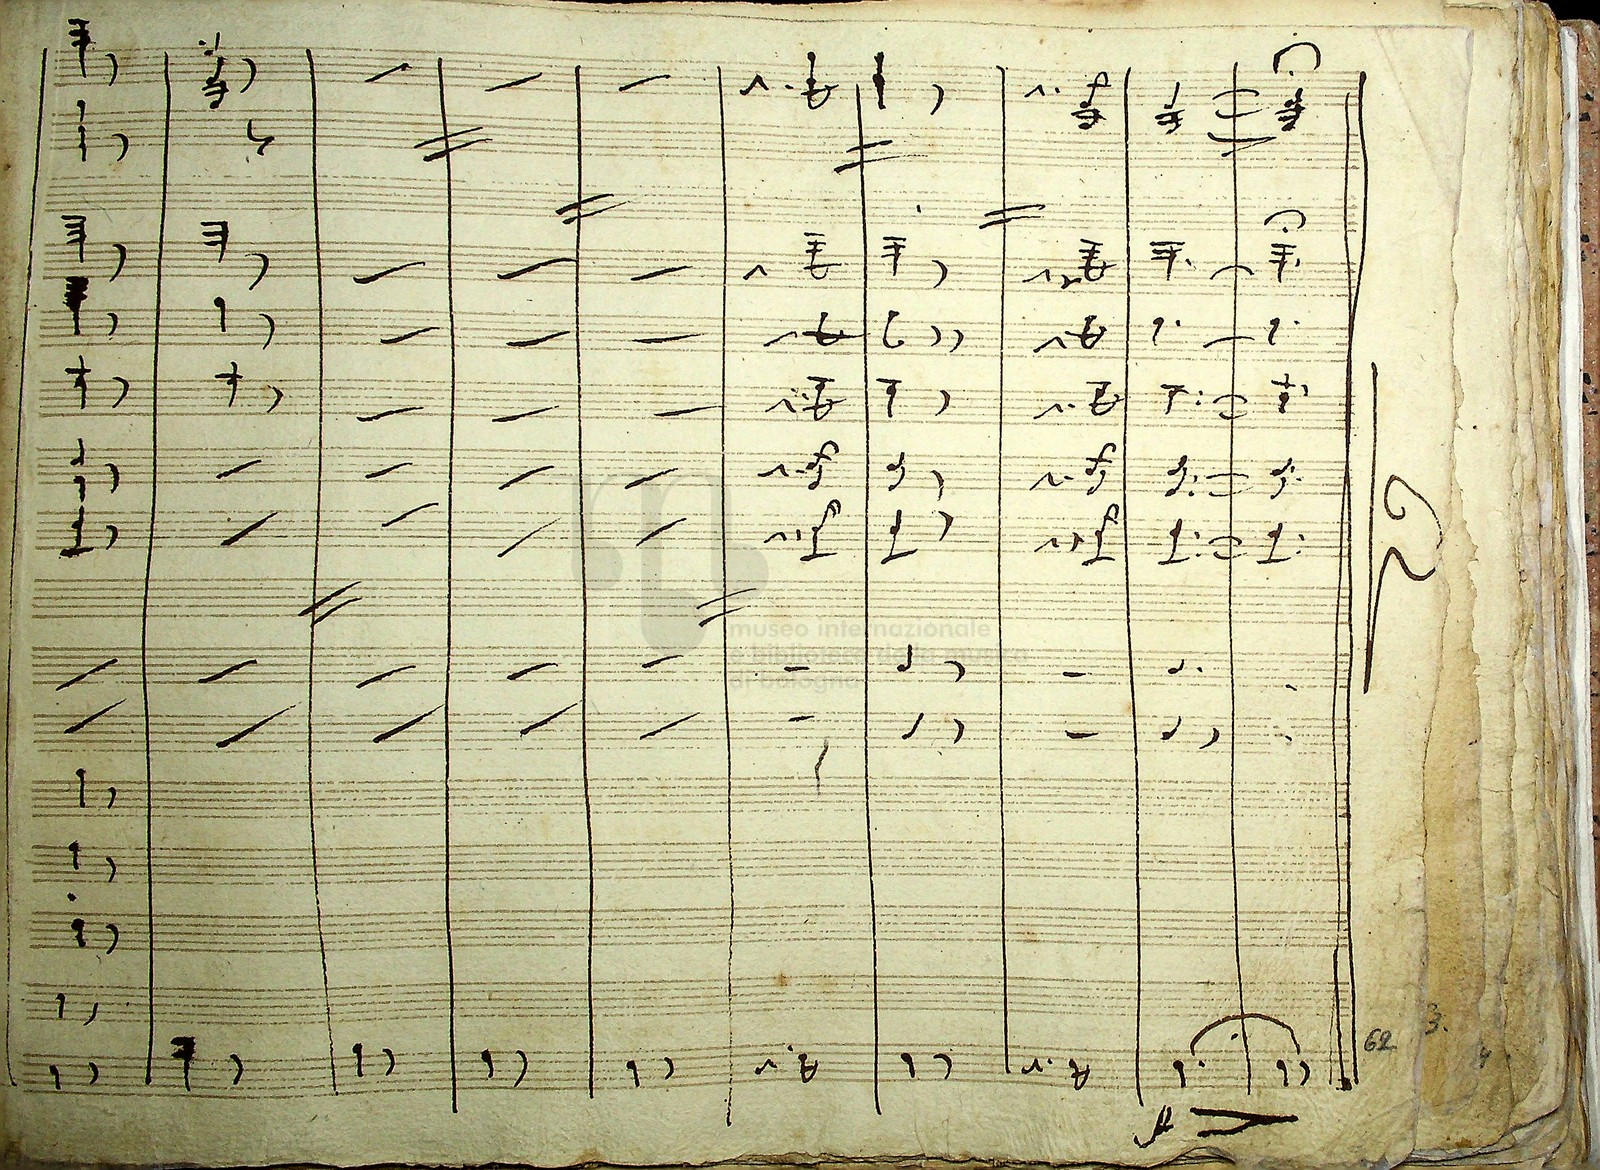 museo internazionale
e biblioteca della musica
di bologna
62
3.